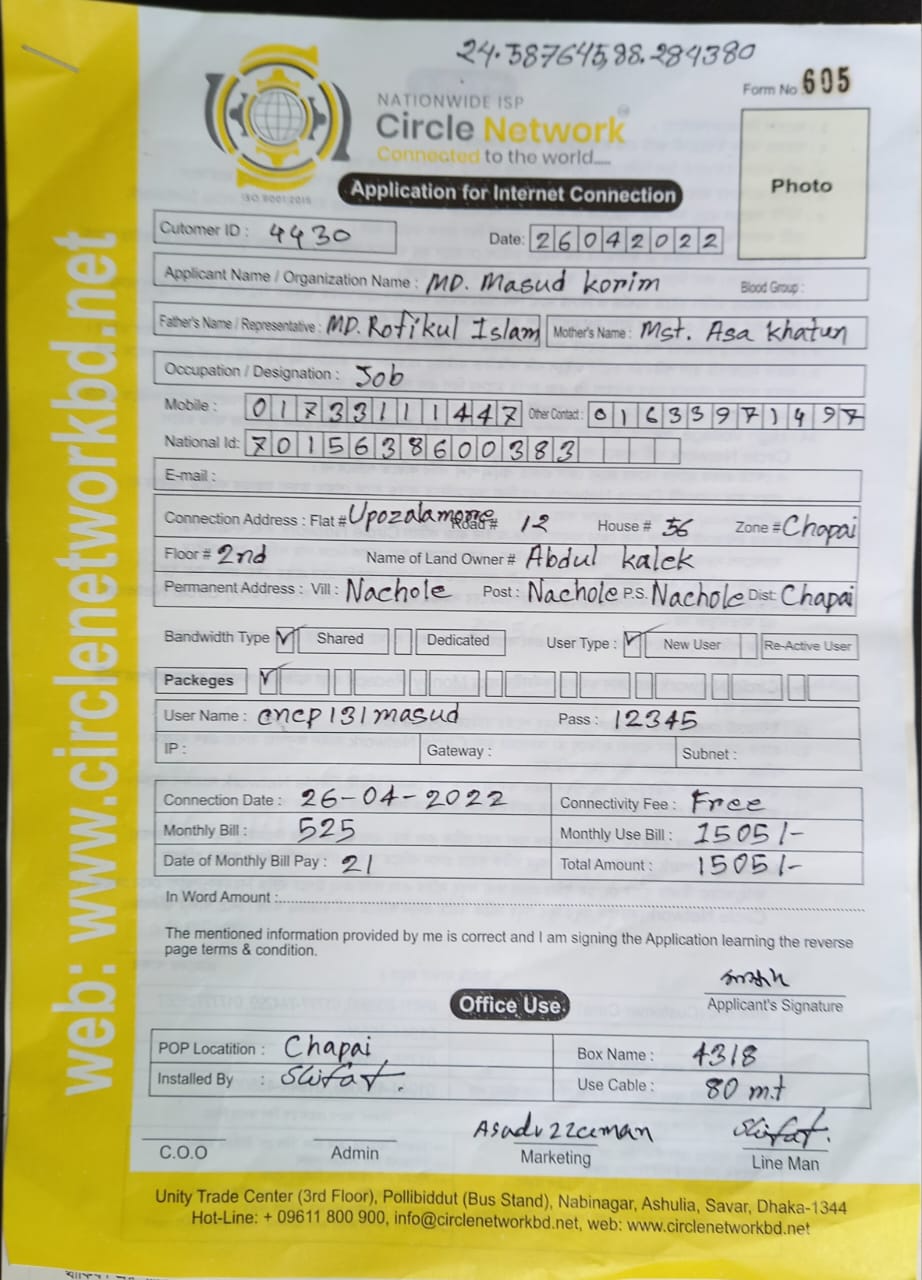 24.587645,88.284380
Form No 605
NATIONWIDE ISP
Circle Network
Connected to the world.....
ISO 9001:2015
Application for Internet Connection
Photo
Cutomer ID : 4430
Date: 26042022
Applicant Name / Organization Name : MD. Masud Korim Blood Group :
Father's Name / Representative : MD. Rofikul Islam Mother's Name : Mst. Asa Khatun
Occupation / Designation : Job
Mobile : 01733111447 Other Contact : 01633971497
National Id: 7015638600383
E-mail :
Connection Address : Flat # Upozalamore Road # 12 House # 56 Zone # Chapai
Floor # 2nd Name of Land Owner # Abdul kalek
Permanent Address : Vill : Nachole Post : Nachole P.S. Nachole Dist: Chapai
Bandwidth Type Shared Dedicated User Type : New User Re-Active User
Packeges
User Name : cncp131masud Pass : 12345
IP : Gateway : Subnet :
Connection Date : 26-04-2022 Connectivity Fee : Free
Monthly Bill : 525 Monthly Use Bill : 1505/-
Date of Monthly Bill Pay : 21 Total Amount : 1505/-
In Word Amount :
The mentioned information provided by me is correct and I am signing the Application learning the reverse
page terms & condition.
Applicant's Signature
Office Use
POP Locatition : Chapai Box Name : 4318
Installed By : Shifat. Use Cable : 80 m.t
Asaduzzaman Shifat.
C.O.O Admin Marketing Line Man
Unity Trade Center (3rd Floor), Pollibiddut (Bus Stand), Nabinagar, Ashulia, Savar, Dhaka-1344
Hot-Line: + 09611 800 900, info@circlenetworkbd.net, web: www.circlenetworkbd.net
web: www.circlenetworkbd.net